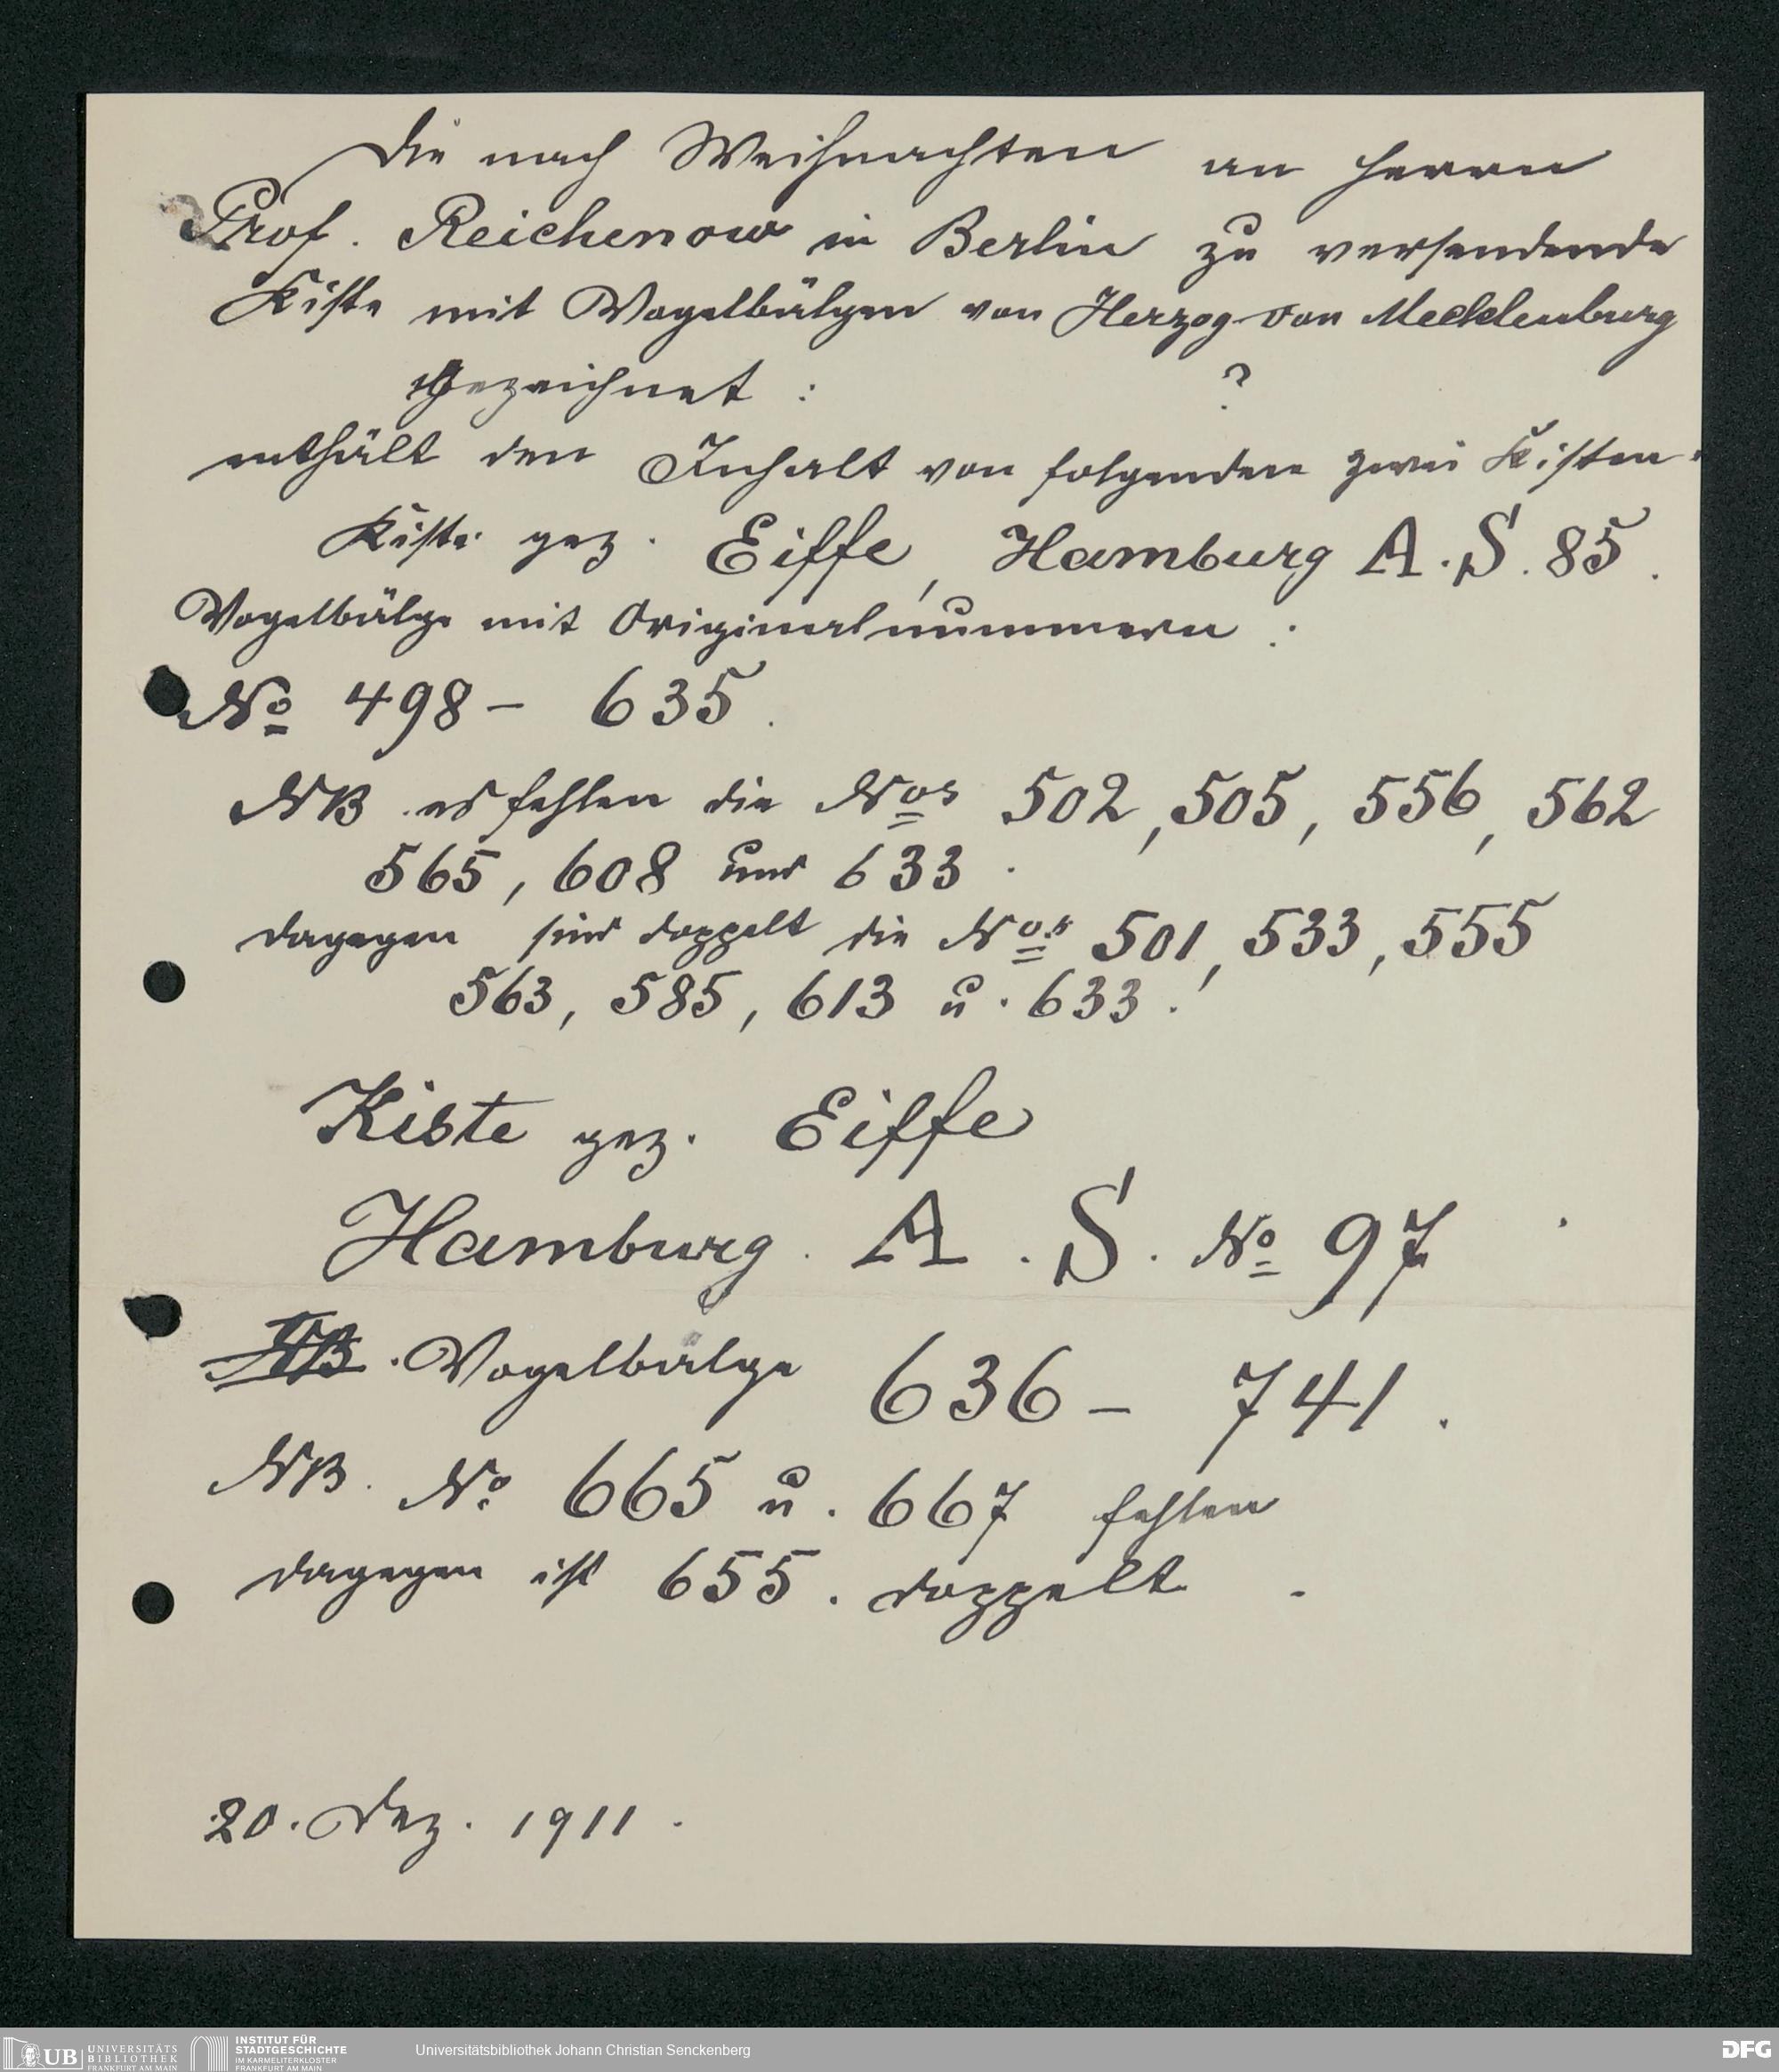 Die nach Weihnachten an Herrn
Prof. Reichenow in Berlin zu versendende
Kiste mit Vogelbälgen von Herzog von Mecklenburg
Gezeichnet : ?
enthält den Inhalt von folgenden zwei Kisten.
Kiste gez. Eiffe, Hamburg A. S. 85.
Vogelbälge mit Originalnummern :
No 498 – 635.
NB. es fehlen die Nos 502, 505, 556, 562
565, 608 und 633.
dagegen sind doppelt die Nos 501, 533, 555
563, 585, 613 u. 633.!
Kiste gez. Eiffe
Hamburg. A. S. No 97
NB. Vogelbälge 636 – 741.
NB. No 665 u. 667 fehlen
dagegen ist 655. doppelt.
20. Dez. 1911.
UB UNIVERSITÄTS BIBLIOTHEK FRANKFURT AM MAIN
INSTITUT FÜR STADTGESCHICHTE IM KARMELITERKLOSTER FRANKFURT AM MAIN
Universitätsbibliothek Johann Christian Senckenberg
DFG